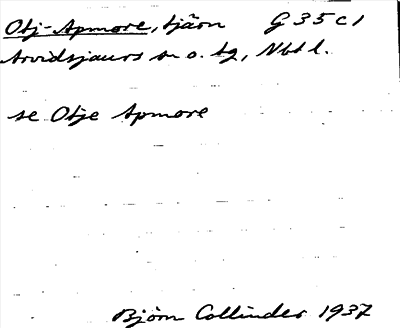 Otj-Apmore, tjärn G 35 c 1
Arvidsjaurs sn o. tg, Nbtl.
se Otje Apmore
Björn Collinder 1937